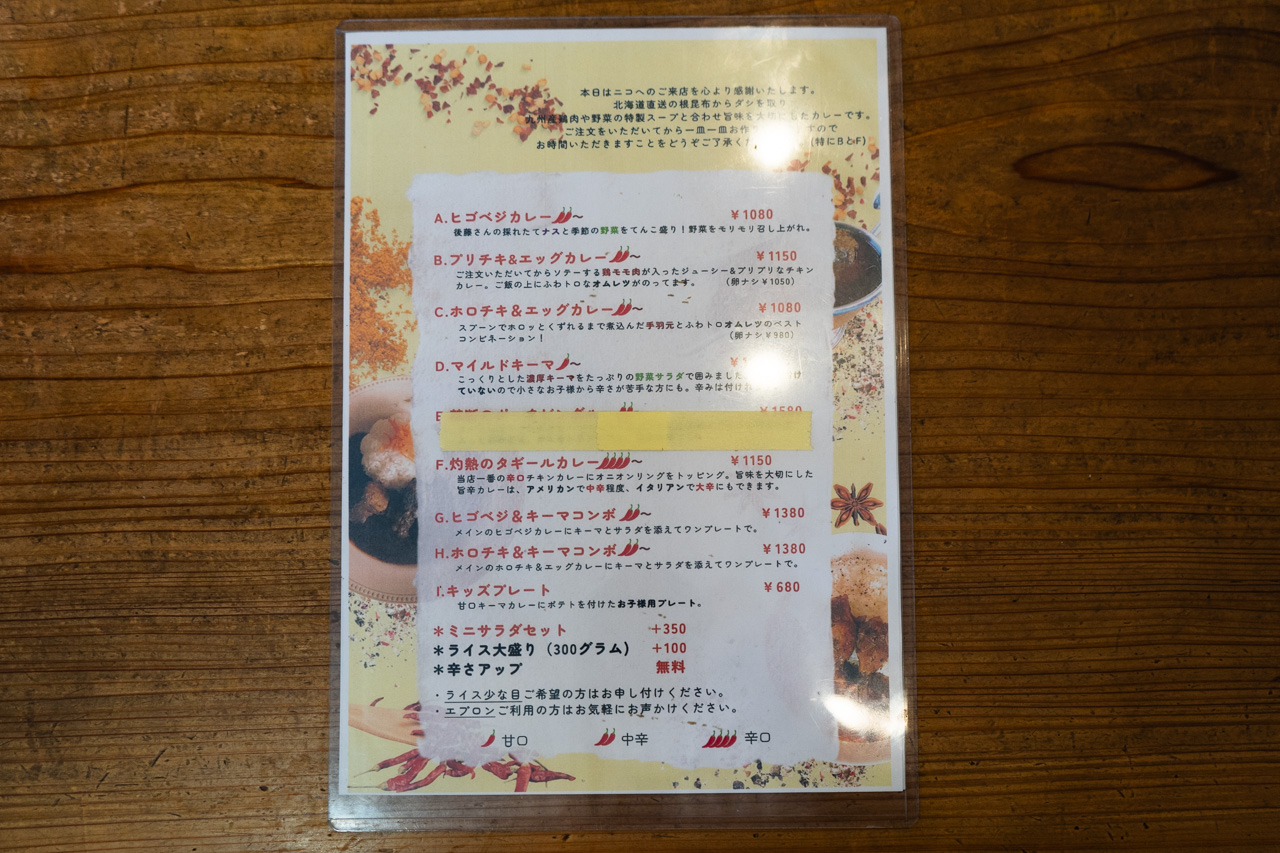 本日はニコへのご来店を心より感謝いたします。
北海道直送の根昆布からダシを取り
九州産鶏肉や野菜の特製スープと合わせ旨味を大切にしたカレーです。
ご注文をいただいてから一皿一皿お作 ですので
お時間いただきますことをどうぞご了承くだ (特にBとF)
A.ヒゴベジカレー〜 ¥1080
後藤さんの採れたてナスと季節の野菜をてんこ盛り！野菜をモリモリ召し上がれ。
B.プリチキ&エッグカレー〜 ¥1150
ご注文いただいてからソテーする鶏モモ肉が入ったジューシー&プリプリなチキン
カレー。ご飯の上にふわトロなオムレツがのってます。 (卵ナシ¥1050)
C.ホロチキ&エッグカレー〜 ¥1080
スプーンでホロッとくずれるまで煮込んだ手羽元とふわトロオムレツのベスト
コンビネーション！ (卵ナシ¥980)
D.マイルドキーマ〜
こっくりとした濃厚キーマをたっぷりの野菜サラダで囲みました
ていないので小さなお子様から辛さが苦手な方にも。辛みは付け
¥1580
F.灼熱のタギールカレー〜 ¥1150
当店一番の辛口チキンカレーにオニオンリングをトッピング。旨味を大切にした
旨辛カレーは、アメリカンで中辛程度、イタリアンで大辛にもできます。
G.ヒゴベジ&キーマコンボ〜 ¥1380
メインのヒゴベジカレーにキーマとサラダを添えてワンプレートで。
H.ホロチキ&キーマコンボ〜 ¥1380
メインのホロチキ&エッグカレーにキーマとサラダを添えてワンプレートで。
I.キッズプレート ¥680
甘口キーマカレーにポテトを付けたお子様用プレート。
＊ミニサラダセット +350
＊ライス大盛り（300グラム） +100
＊辛さアップ 無料
・ライス少な目ご希望の方はお申し付けください。
・エプロンご利用の方はお気軽にお声かけください。
甘口 中辛 辛口